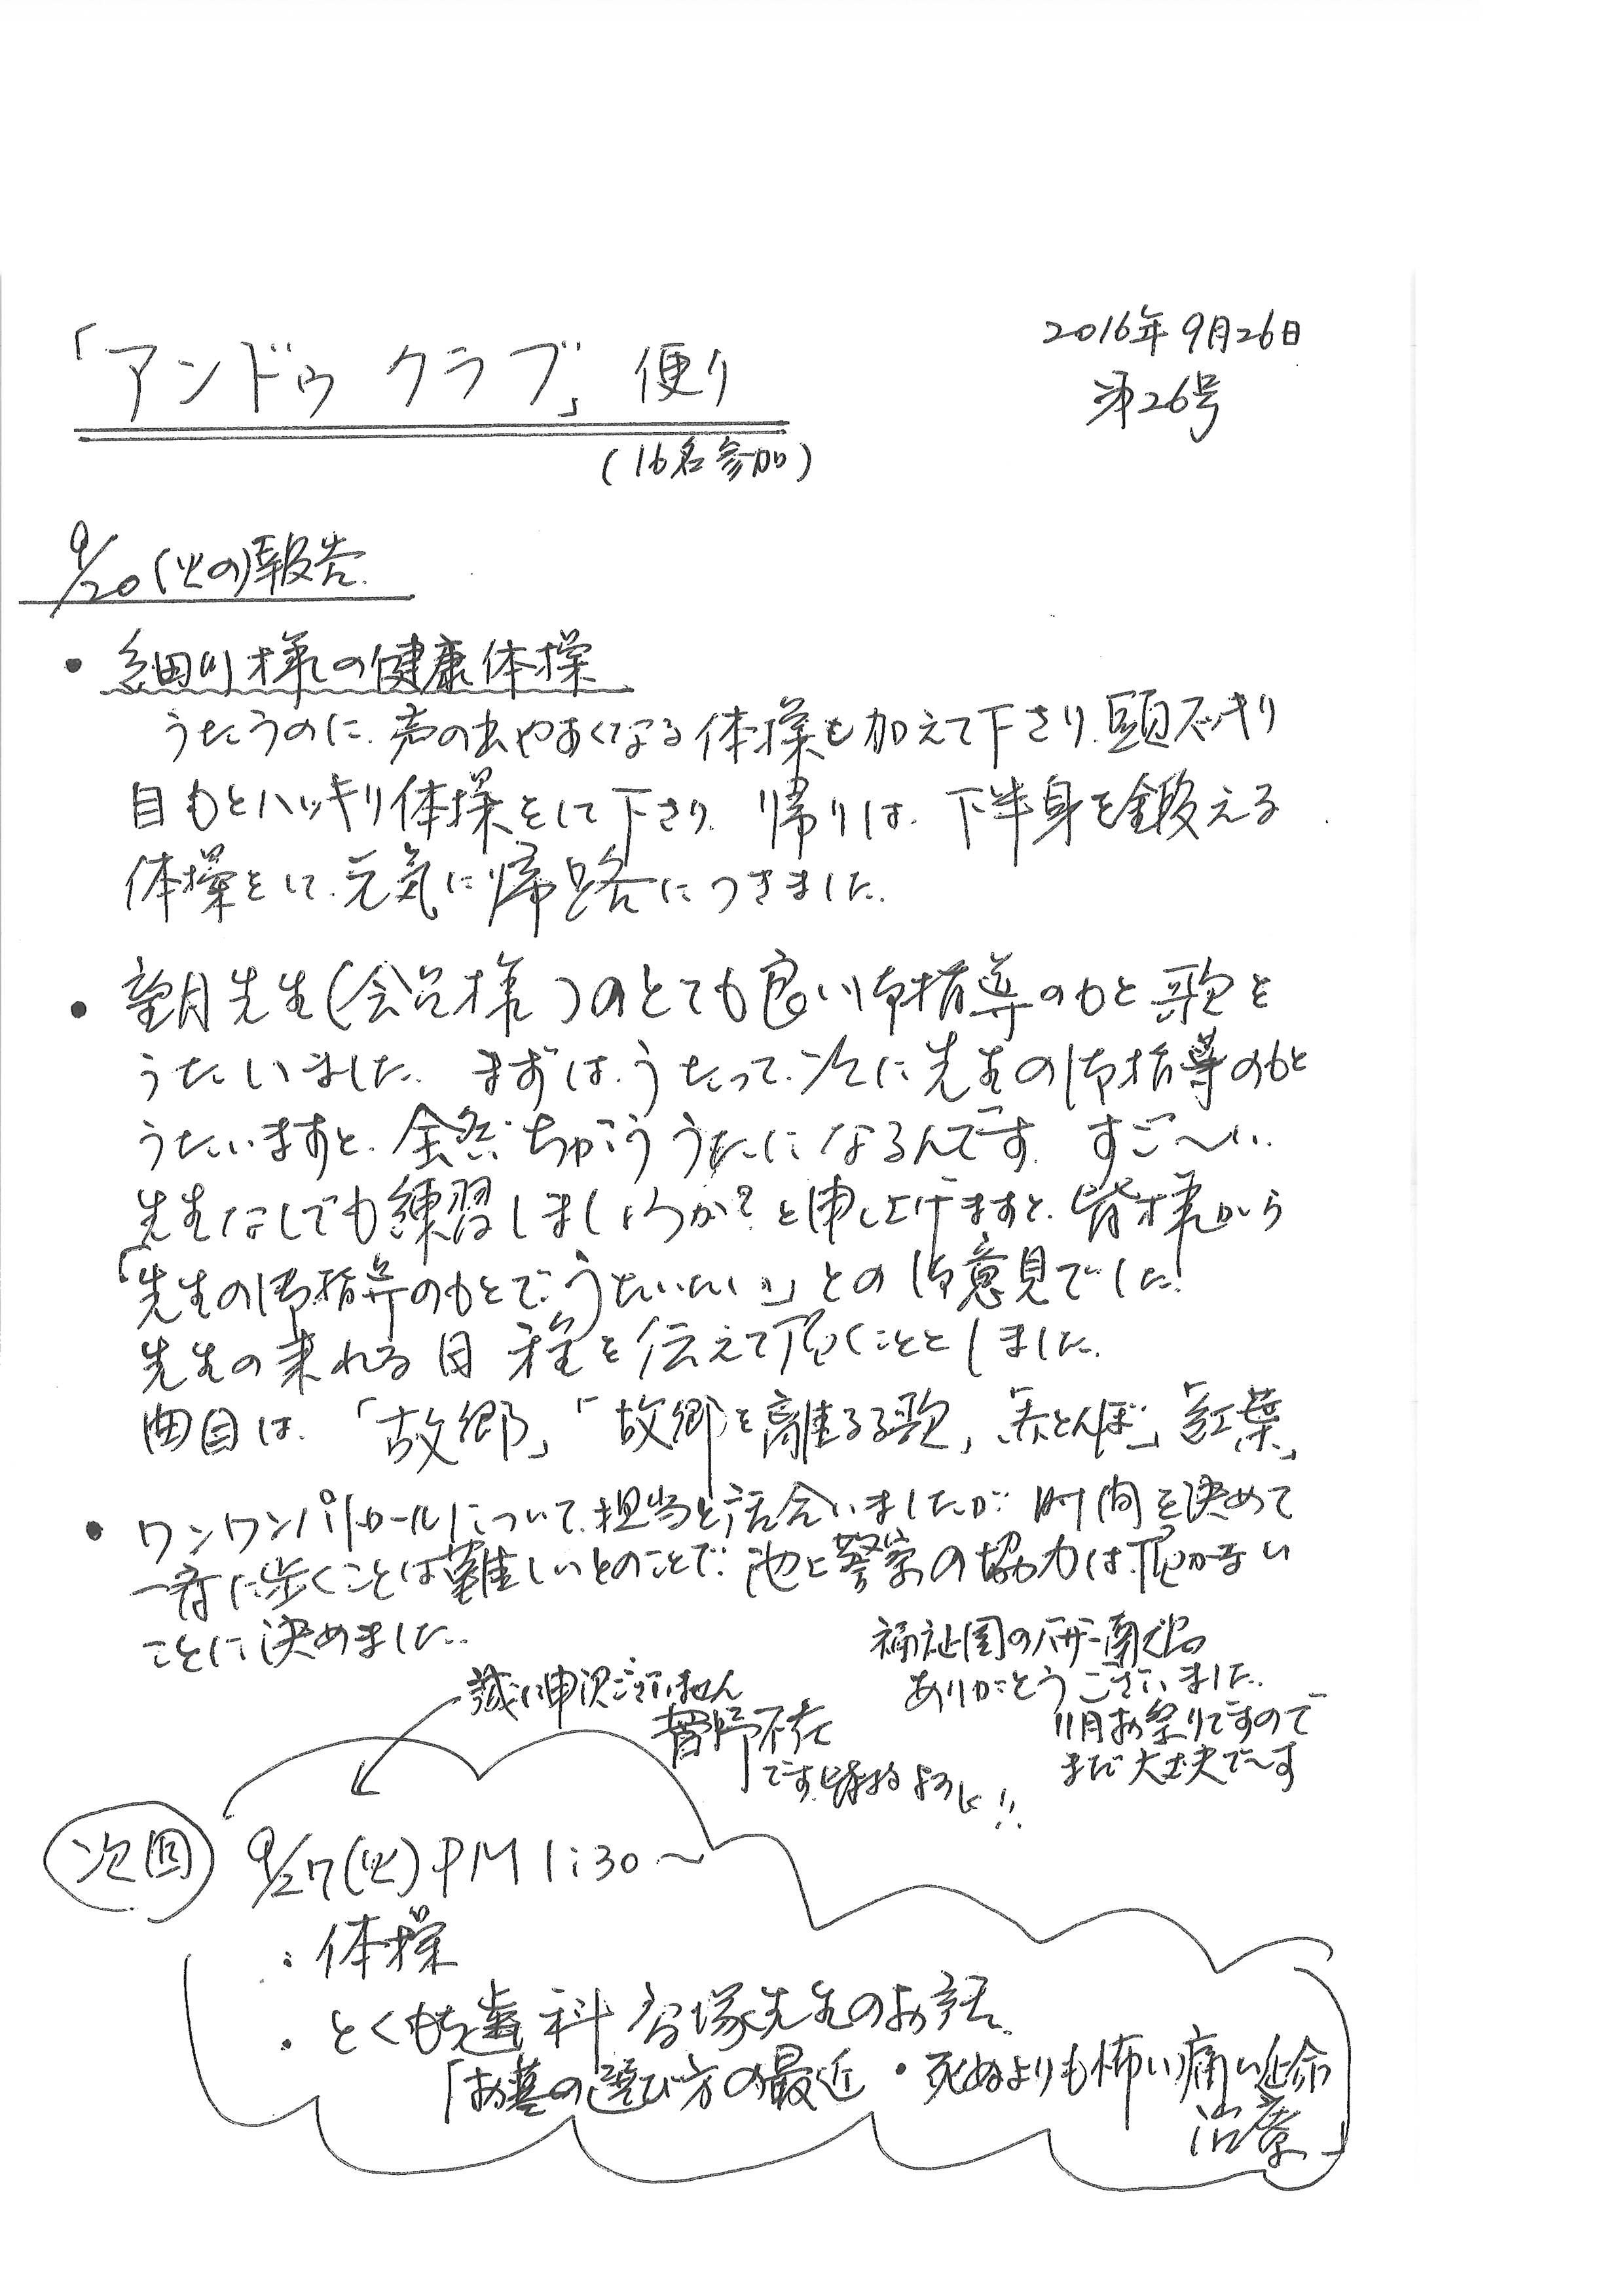 2016年9月26日
「アンドゥ クラブ」便り
第26号
(16名参加)
9/20(火の)報告
・細川様の健康体操
うたうのに、声の出やすくなる体操も加えて下さり、頭スッキリ
目もとハッキリ体操をして下さり、帰りは、下半身を鍛える
体操をして、元気に帰路につきました。
・望月先生(会員様)のとても良い御指導のもと歌を
うたいました。まずは、うたって、次に先生の御指導のもと
うたいますと、全然ちがううたになるんです。すご〜い。
先生なしでも練習しましょうか?と申し上げますと、皆様から
「先生の御指導のもとで、うたいたい」との御意見でした。
先生の来れる日程を伝えて頂くこととしました。
曲目は、「故郷」「故郷を離るる歌」「赤とんぼ」「紅葉」
・ワンワンパトロールについて、担当と話合いましたが、時間を決めて
一緒に歩くことは難しいとのことで、池上警察の協力は頂かない
ことに決めました。
福祉園のバザー献品
ありがとうございました。
11月お祭りですので
まだ大丈夫で〜す
誠に申訳ございません
菅野不在
です。皆様よろしく!!
次回 9/27(火)PM1:30〜
・体操
・とくもち歯科 宮塚先生のお話
「お墓の選び方の最近・死ぬよりも怖い痛い延命
治療」